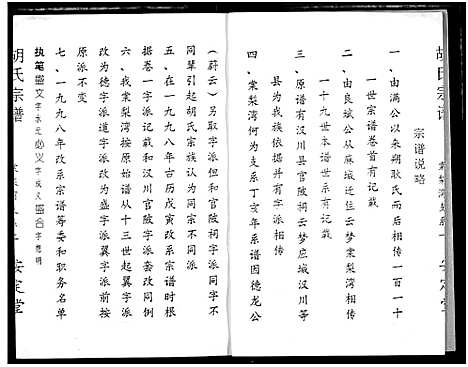 胡氏宗谱
宗谱说略
一、由满公以来朔耿氏而后相传一百一十
一世宗谱卷首有记载
二、由良斌公从麻城迁住云梦棠梨湾相传
一十九世本谱世系有记载
三、原谱有汉川县官陂祠云梦应城汉川等
县为我族依据并有字派相传
四、棠梨湾何为支派丁亥年系谱因德龙公
(蔚云)另取字派但和官陂祠字派同字不
同辈引起胡氏宗亲族人同宗不同派
五、在一九九八年古历戊寅改系宗谱时根
据卷一字派记载和汉川官陂字派套改同例
六、我棠梨湾按原始谱从十三世起翼字派
改为德字派道字派改为盛字派翼字派前按
原派不变
七、一九九八年改系宗谱筹委和职务名单
执笔盛文
胡氏宗谱
安定堂